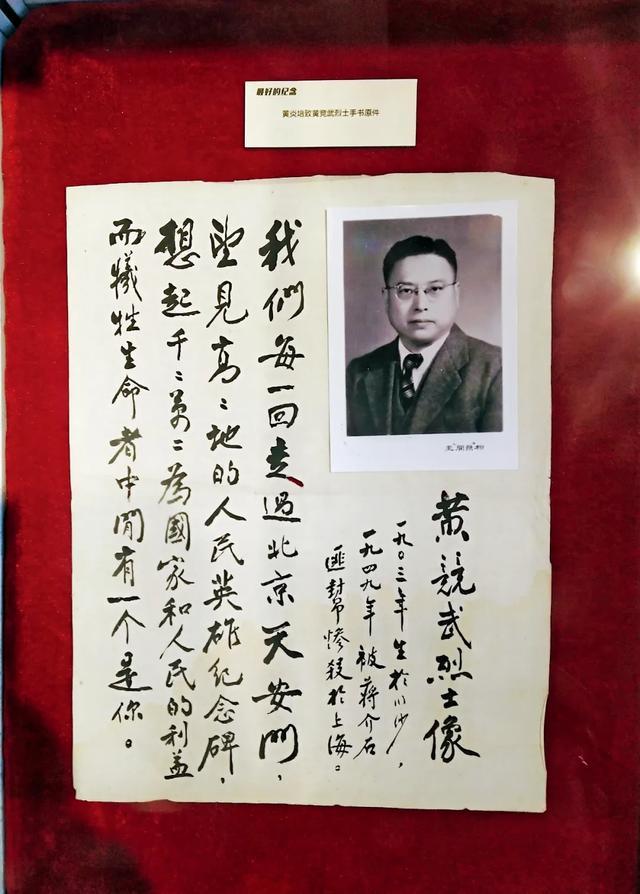 最好的纪念
黄炎培致黄竞武烈士手书原件
黄競武烈士像
一九〇三年生於川沙，
一九四九年被蔣介石
匪幫慘殺於上海。
我們每一回走過北京天安門，
望見高〻地的人民英雄紀念碑，
想起千〻萬〻為國家和人民的利益
而犧牲生命者中間有一个是你。